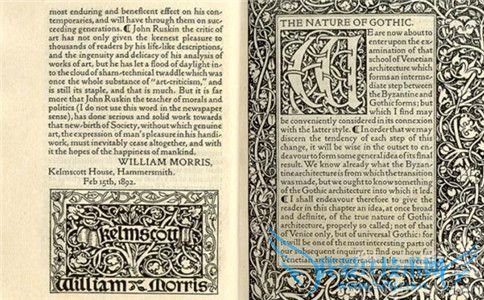 most enduring and beneficent effect on his con-
temporaries, and will have through them on suc-
ceeding generations. ¶ John Ruskin the critic of
art has not only given the keenest pleasure to
thousands of readers by his life-like descriptions,
and the ingenuity and delicacy of his analysis of
works of art, but he has let a flood of daylight in-
to the cloud of sham-technical twaddle which was
once the whole substance of "art-criticism," and
is still its staple, and that is much. But it is far
more that John Ruskin the teacher of morals and
politics (I do not use this word in the newspaper
sense), has done serious and solid work towards
that new-birth of Society, without which genuine
art, the expression of man's pleasure in his handi-
work, must inevitably cease altogether, and with
it the hopes of the happiness of mankind.
WILLIAM MORRIS,
Kelmscott House, Hammersmith.
Feb 15th, 1892.
Kelmscott
William Morris
THE NATURE OF GOTHIC.
WE are now about to
enter upon the exam-
ination of that
school of Venetian
architecture which
forms an interme-
diate step between
the Byzantine and
Gothic forms; but
which I find may
be conveniently considered in its connexion
with the latter style. ¶ In order that we may
discern the tendency of each step of this
change, it will be wise in the outset to en-
deavour to form some general idea of its final
result. We know already what the Byzan-
tine architecture is from which the transition
was made, but we ought to know something
of the Gothic architecture into which it led.
¶ I shall endeavour therefore to give the
reader in this chapter an idea, at once broad
and definite, of the true nature of Gothic
architecture, properly so called; not of that
of Venice only, but of universal Gothic: for
will be one of the most interesting parts
our subsequent inquiry, to find out how far
Venetian